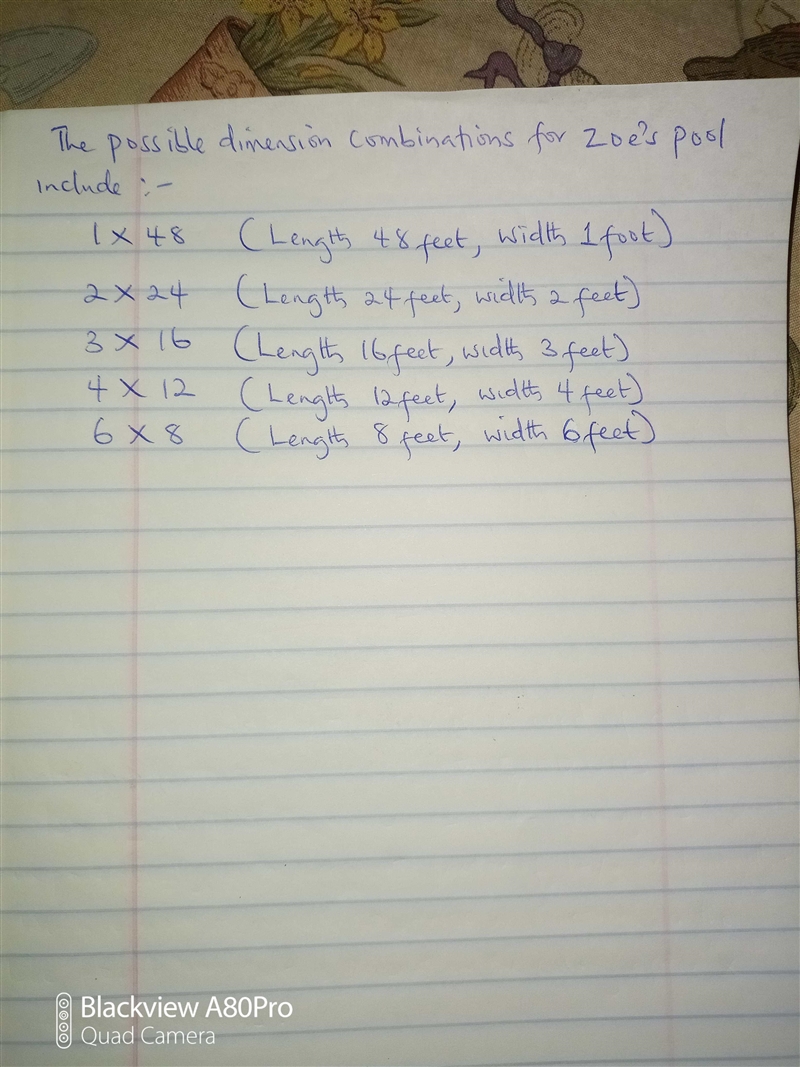 The possible dimension combinations for Zoe's pool
include :-
1 × 48 (Length 48 feet, width 1 foot)
2 × 24 (Length 24 feet, width 2 feet)
3 × 16 (Length 16 feet, width 3 feet)
4 × 12 (Length 12 feet, width 4 feet)
6 × 8 (Length 8 feet, width 6 feet)
Blackview A80Pro
Quad Camera